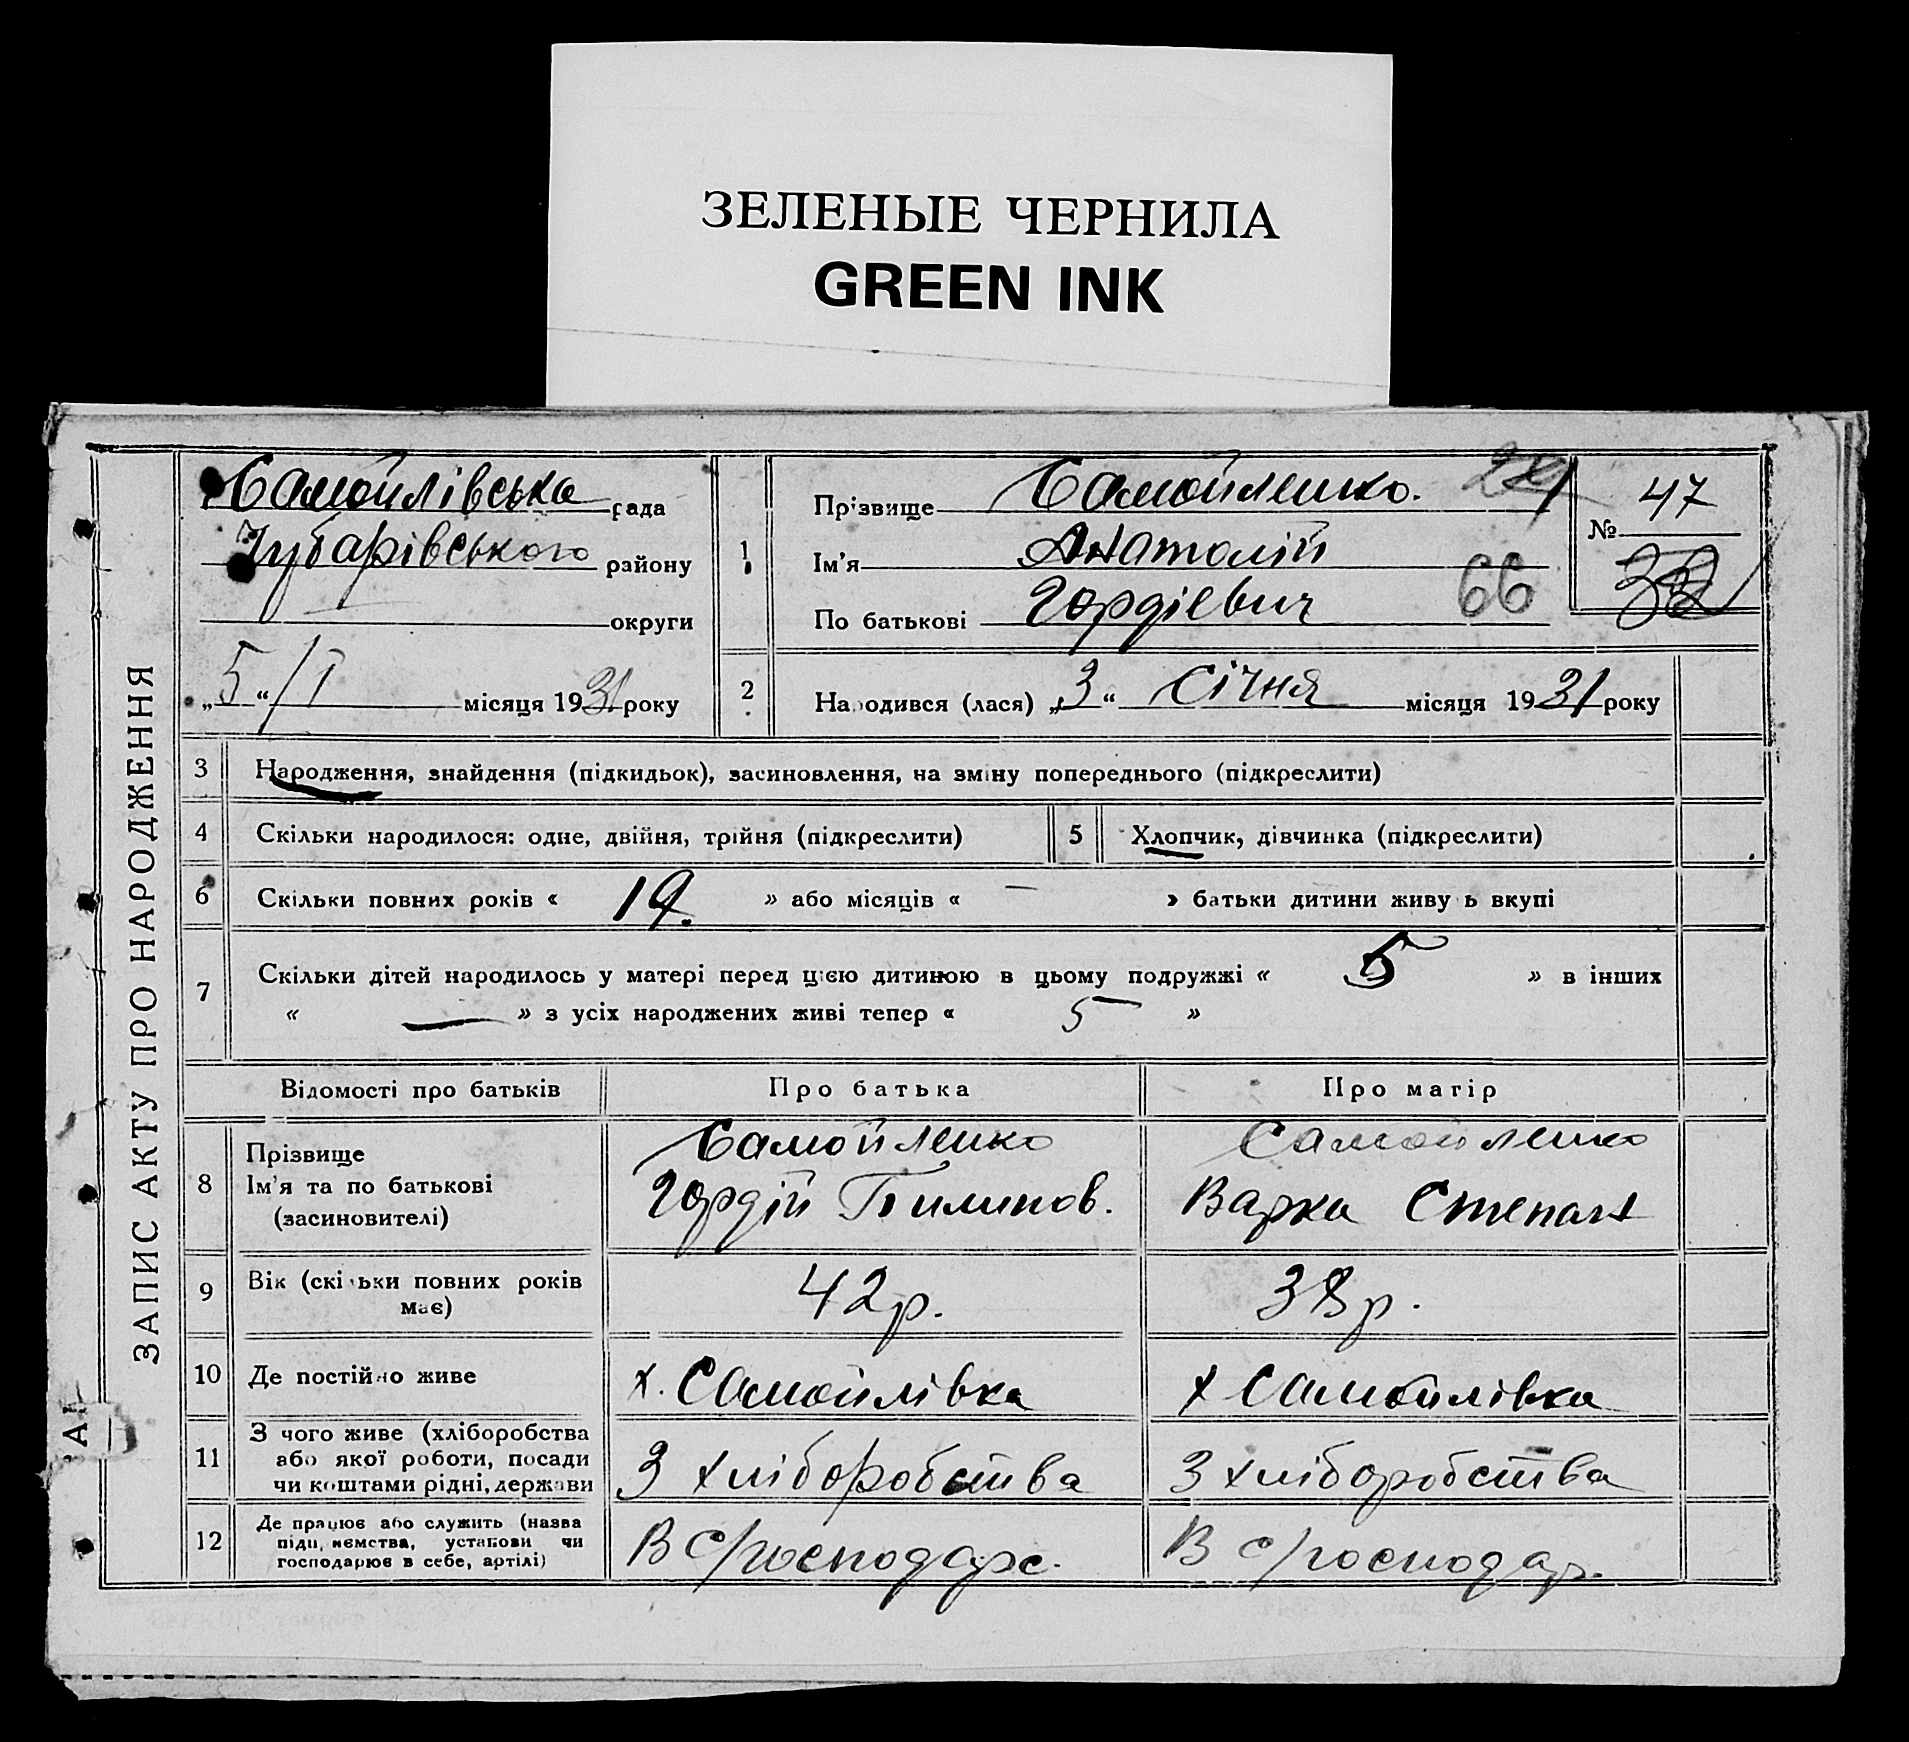 ЗЕЛЕНЫЕ ЧЕРНИЛА
GREEN INK
ЗАПИС АКТУ ПРО НАРОДЖЕННЯ
Самойлівська рада
Чубарівського району
округи
„5“/I місяця 1931 року
1
Прізвище Самойленко.
Ім'я Анатолій
По батькові Гордієвич
66
№ 47
2 Народився (лася) „3“ Січня місяця 1931 року
3 Народження, знайдення (підкидьок), засиновлення, на зміну попереднього (підкреслити)
4 Скільки народилося: одне, двійня, трійня (підкреслити)
5 Хлопчик, дівчинка (підкреслити)
6 Скільки повних років « 19. » або місяців « — » батьки дитини живуть вкупі
7 Скільки дітей народилось у матері перед цією дитиною в цьому подружжі « 5 » в інших
« — » з усіх народжених живі тепер « 5 »
Відомості про батьків Про батька Про матір
8 Прізвище
Ім'я та по батькові
(засиновителі)
Самойленко
Гордій
Самойленко
Варка Степан
9 Вік (скільки повних років
має)
42 р.
38 р.
10 Де постійно живе
х. Самойлівка
х Самойлівка
11 З чого живе (хліборобства
або якої роботи, посади
чи коштами рідні, держави
З хліборобства
З хліборобства
12 Де працює або служить (назва
підприємства, установи чи
господарює в себе, артілі)
В с/господарс.
В с/господар.